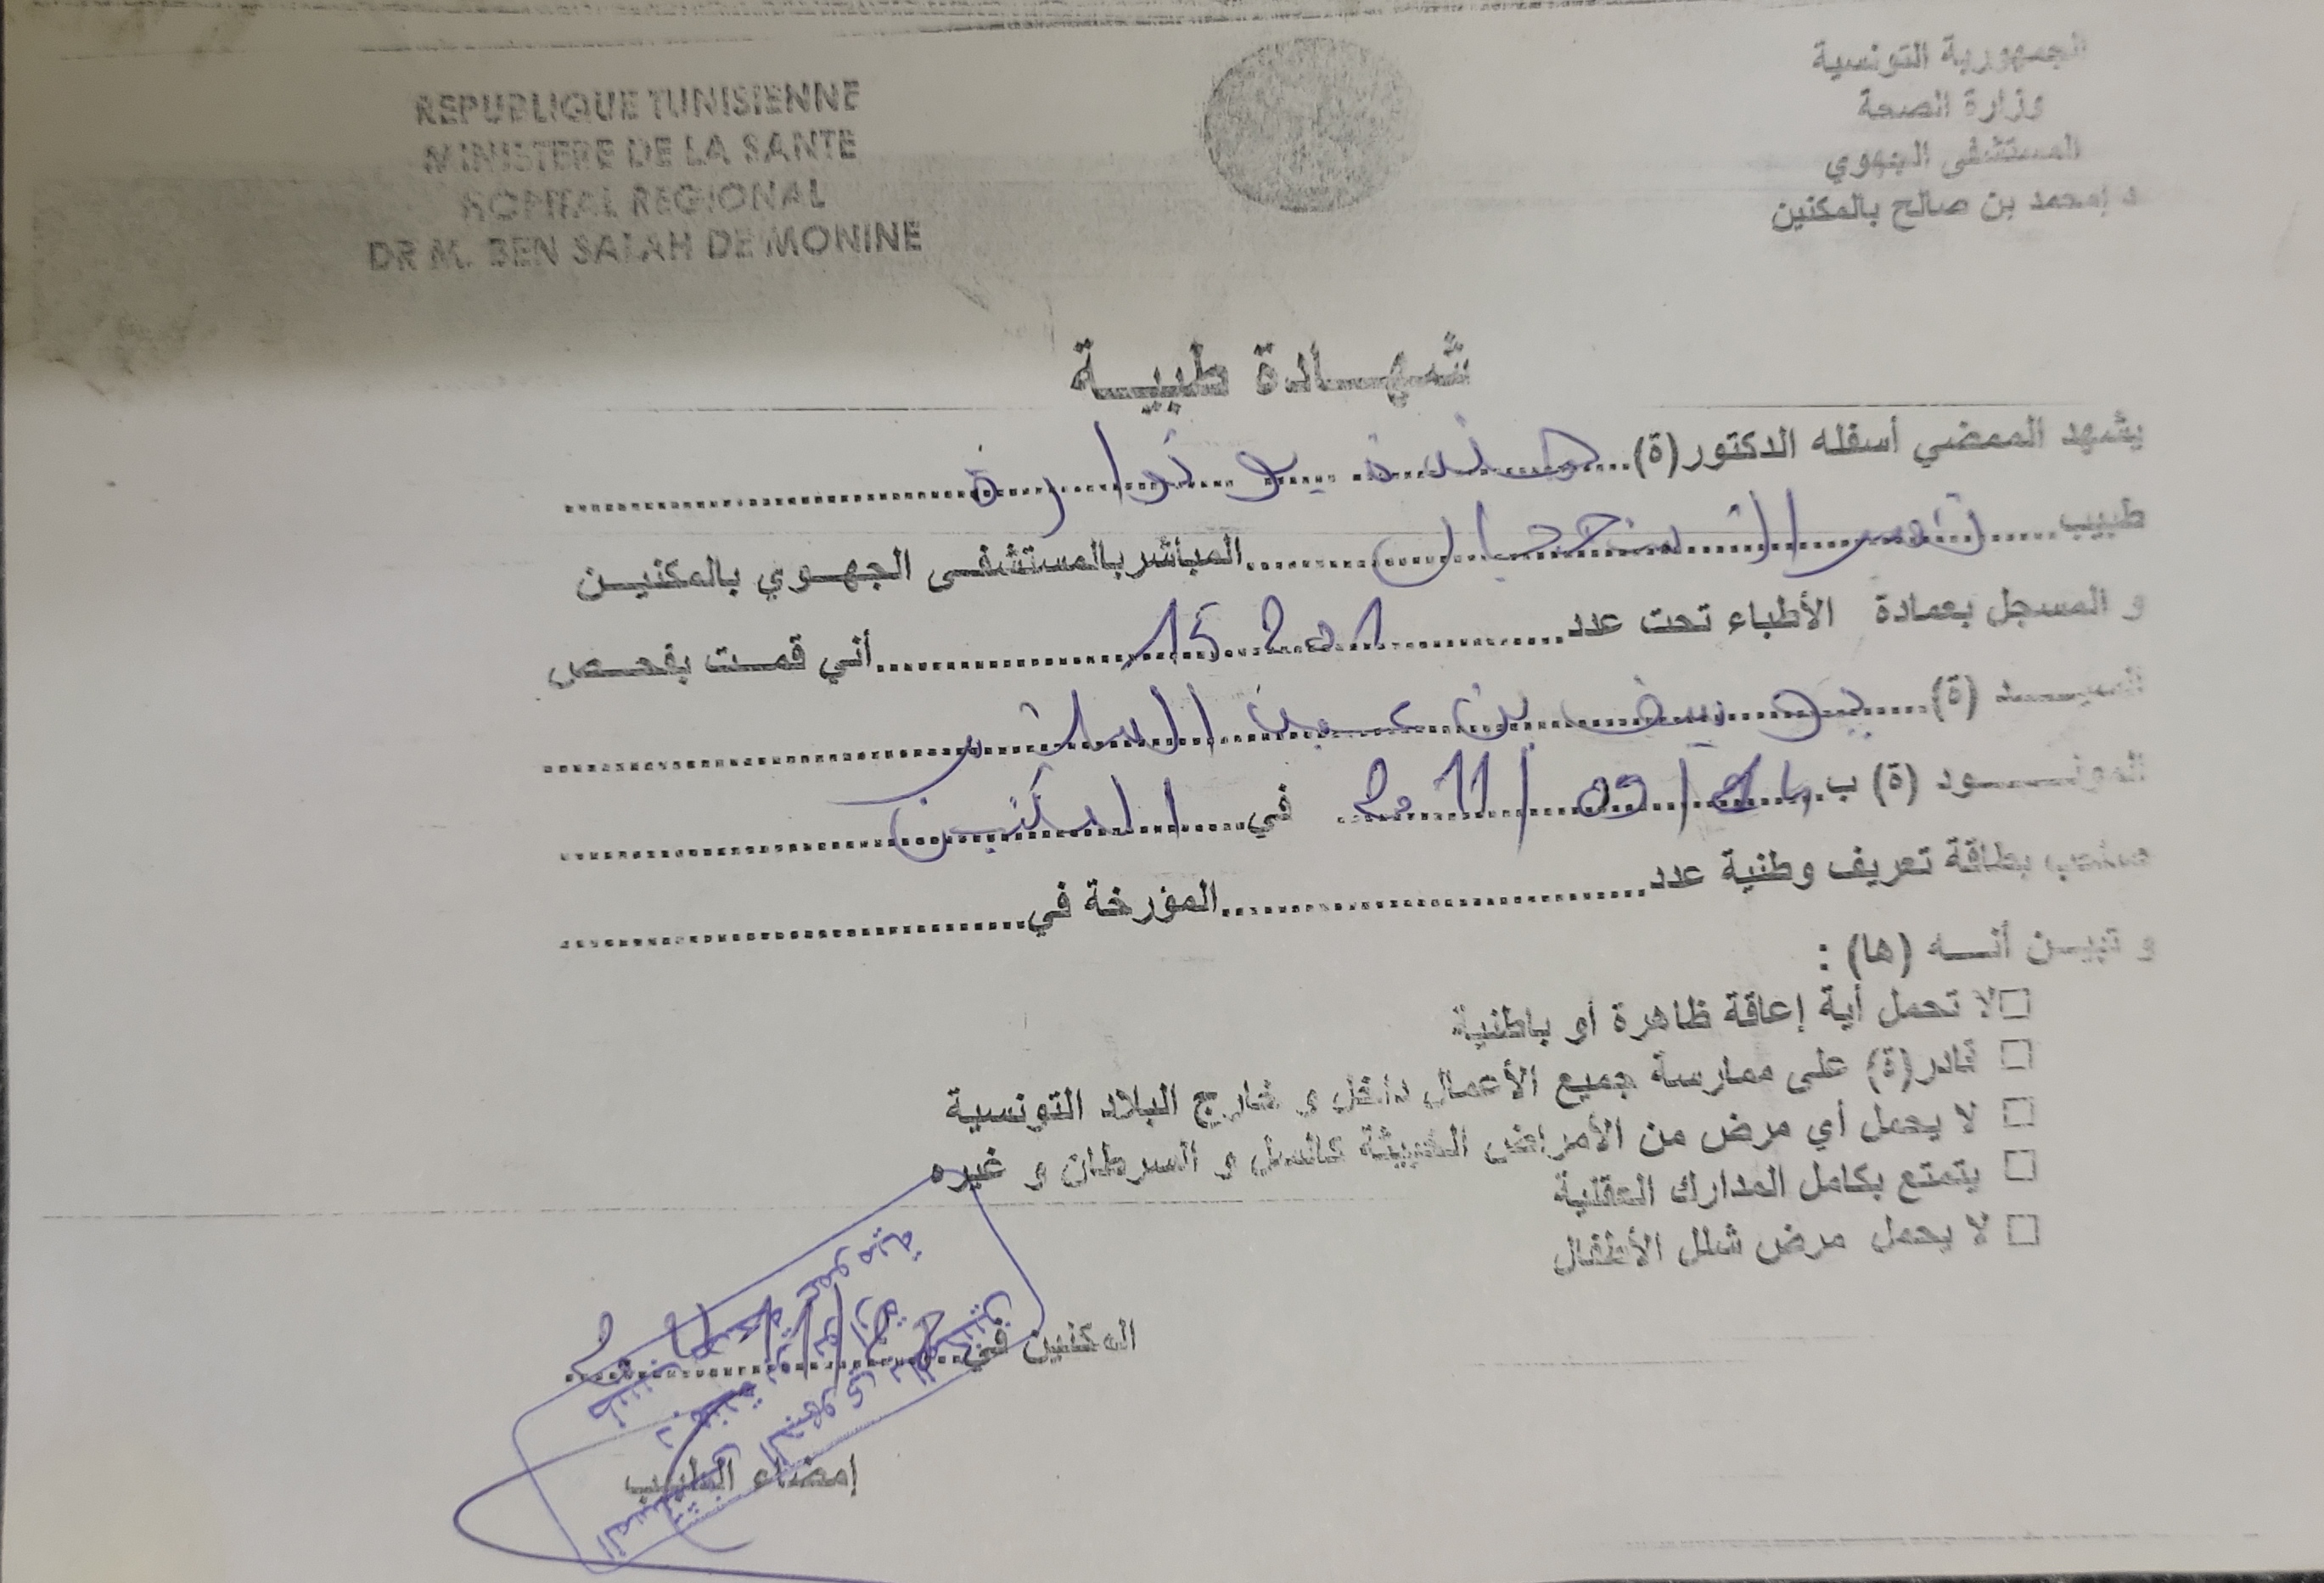 REPUBLIQUE TUNISIENNE
MINISTERE DE LA SANTE
HOPITAL REGIONAL
DR M. BEN SALAH DE MONINE
الجمهورية التونسية
وزارة الصحة
المستشفى الجهوي
د إمحمد بن صالح بالمكنين
شهادة طبية
يشهد الممضي أسفله الدكتور(ة) هندة بونوارة
طبيب قسم الاستعجالي المباشر بالمستشفى الجهوي بالمكنين
و المسجل بعمادة الأطباء تحت عدد 15201 أني قمت بفحص
السيد (ة) يوسف بن
المولود (ة) ب / 09 / 2011 في المكنين
صاحب بطاقة تعريف وطنية عدد المؤرخة في
و تبين أنه (ها) :
□ لا تحمل أية إعاقة ظاهرة أو باطنية
□ قادر(ة) على ممارسة جميع الأعمال داخل و خارج البلاد التونسية
□ لا يحمل أي مرض من الأمراض الخبيثة كالسل و السرطان و غيره
□ يتمتع بكامل المدارك العقلية
□ لا يحمل مرض شلل الأطفال
المكنين في
إمضاء الطبيب